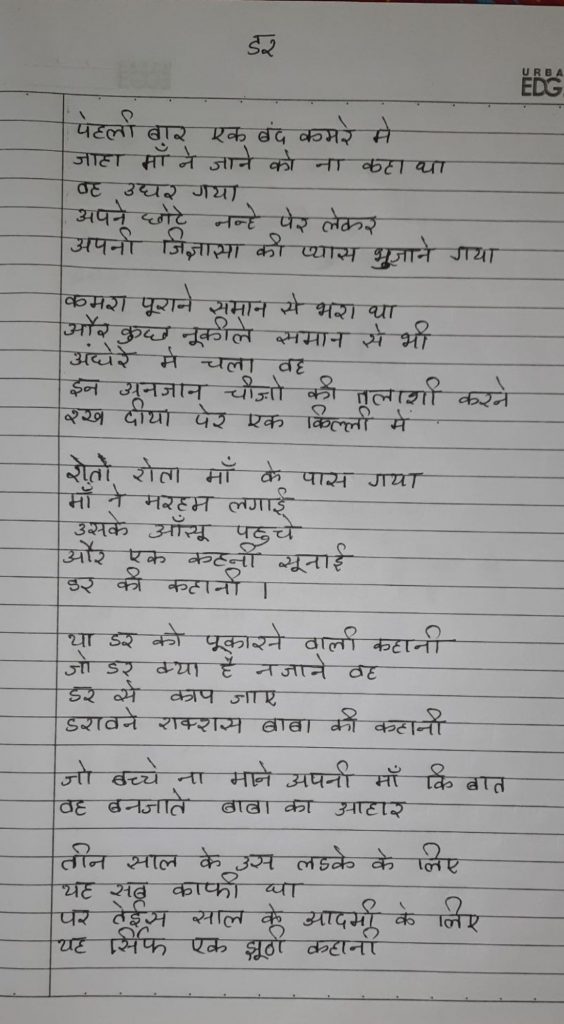 डर
URBA
EDG
पेहली बार एक बंद कमरे मे
जाहा माँ ने जाने को ना कहा था
वह उधर गया
अपने छोटे नन्हे पेर लेकर
अपनी जिज्ञासा की प्यास भुजाने गया
कमरा पूराने समान से भरा था
और कुछ नूकीले समान से भी
अंधेरे मे चला वह
इन अनजान चीजो की तलाशी करने
रख दीया पेर एक किल्ली में
रोतो रोता माँ के पास गया
माँ ने मरहम लगाई
उसके आँसू पहुचे
और एक कहनी सूनाई
डर की कहानी ।
या डर को पूकारने वाली कहानी
जो डर क्या है नजाने वह
डर से काप जाए
डरावने राकरास बाबा की कहानी
जो बच्चे ना माने अपनी माँ कि बात
वह बनजाते बाबा का आहार
तीन साल के उस लडके के लिए
यह सब काफी था
पर तेईस साल के आदमी के लिए
यह सिर्फ एक झूठी कहानी